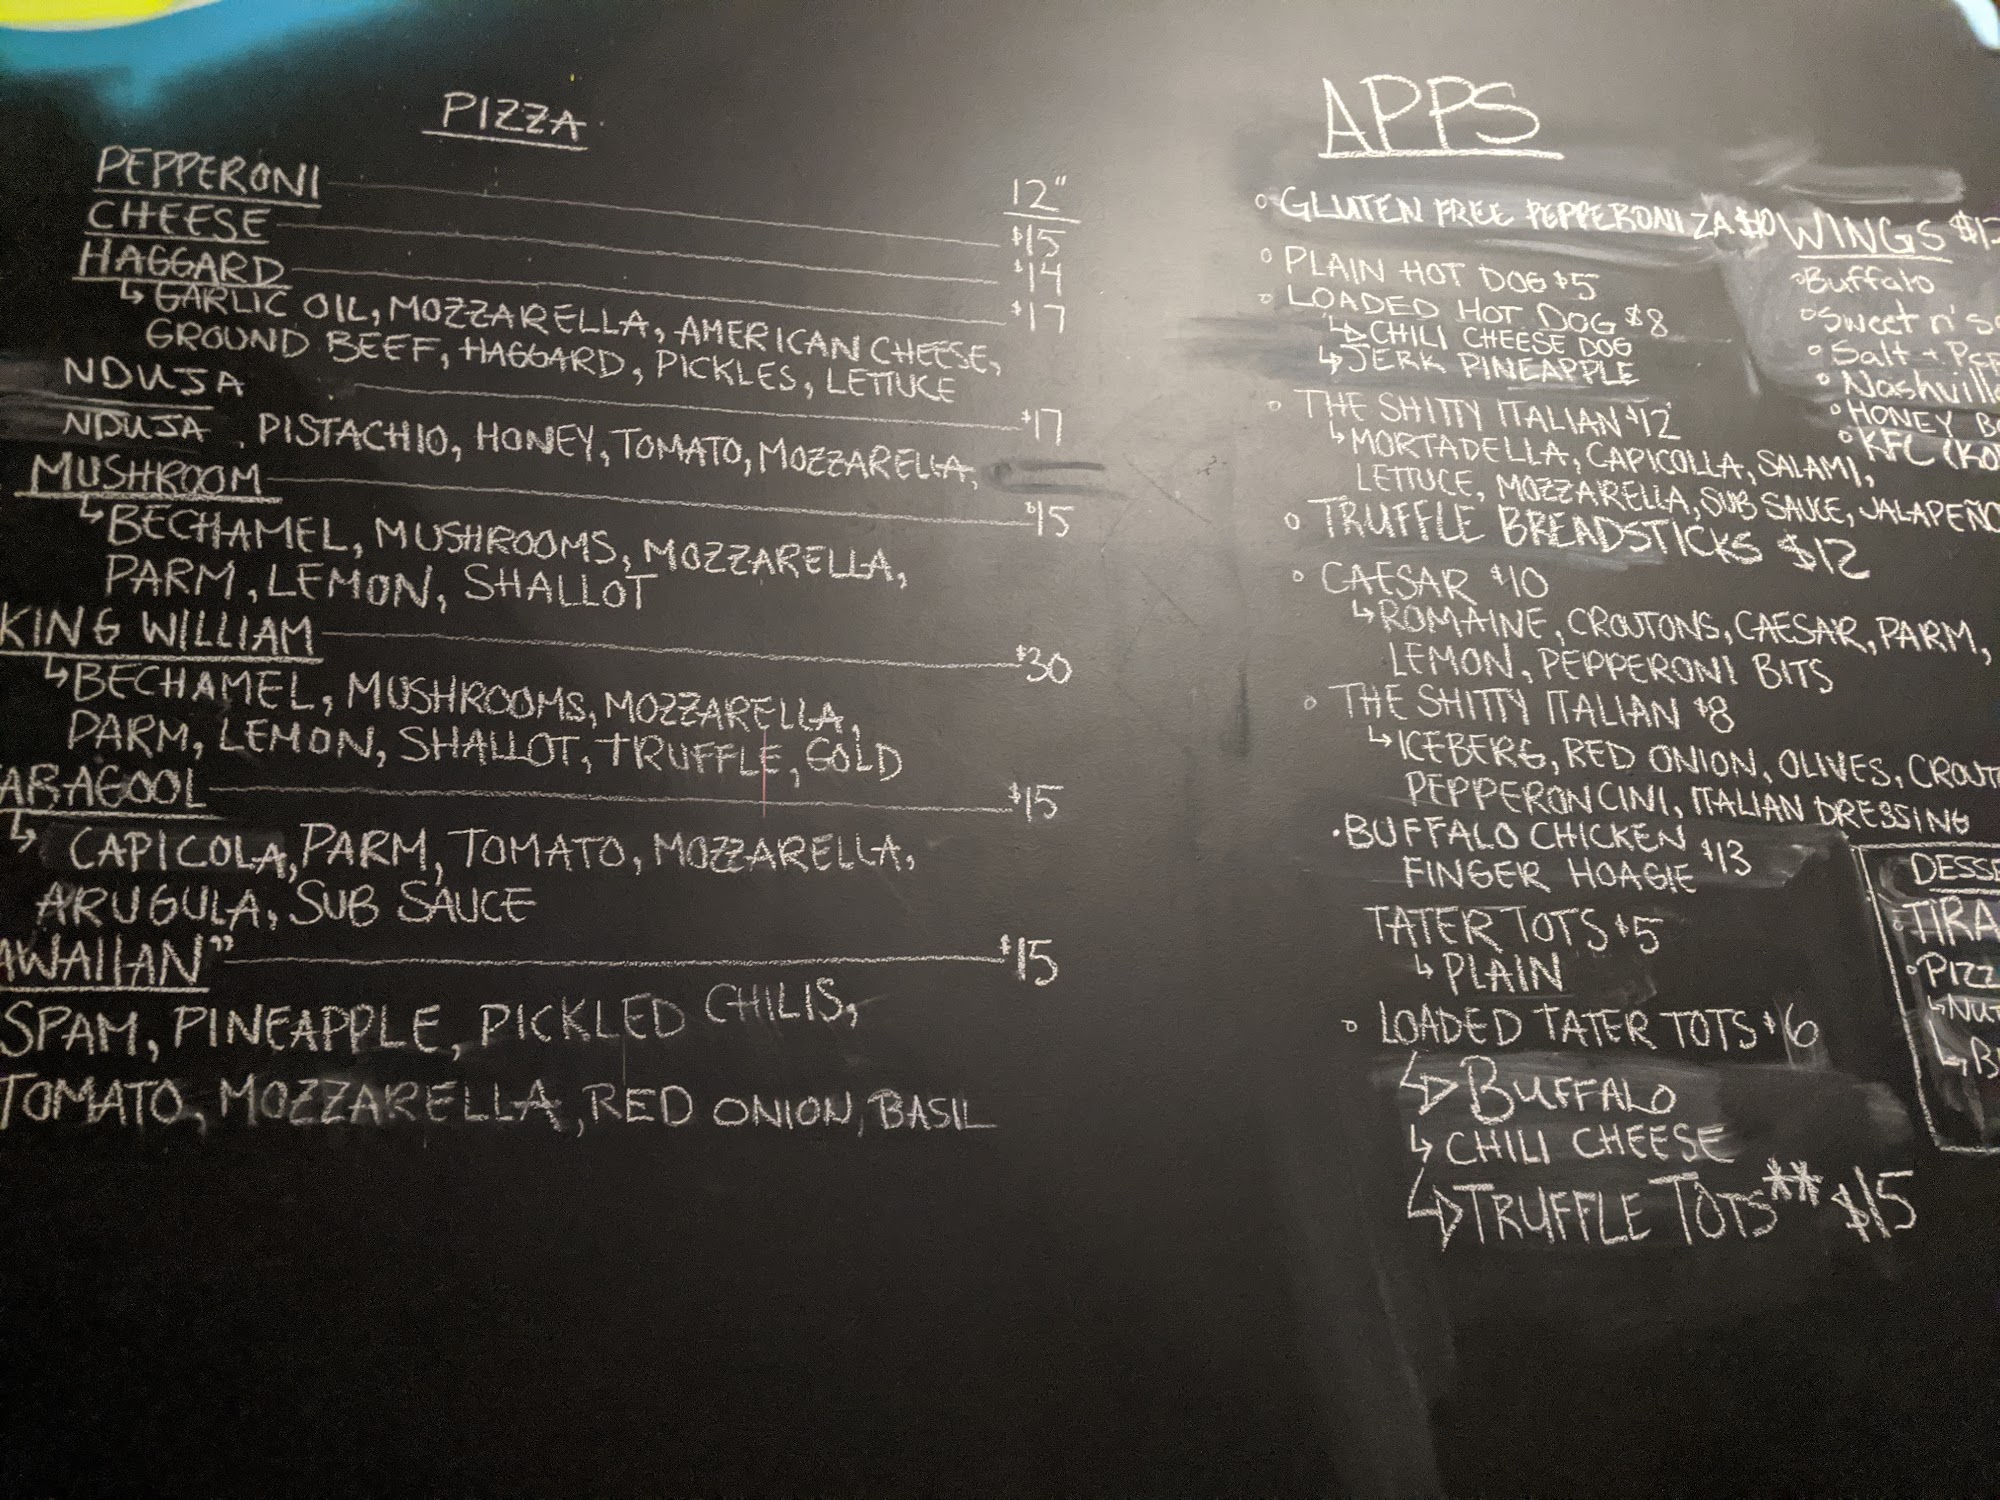 PIZZA
12"
PEPPERONI $15
CHEESE $14
HAGGARD $17
↳ GARLIC OIL, MOZZARELLA, AMERICAN CHEESE,
GROUND BEEF, HAGGARD, PICKLES, LETTUCE
NDUJA $17
NDUJA, PISTACHIO, HONEY, TOMATO, MOZZARELLA,
MUSHROOM $15
↳ BECHAMEL, MUSHROOMS, MOZZARELLA,
PARM, LEMON, SHALLOT
KING WILLIAM $30
↳ BECHAMEL, MUSHROOMS, MOZZARELLA,
PARM, LEMON, SHALLOT, TRUFFLE, GOLD
ABAGOOL $15
↳ CAPICOLA, PARM, TOMATO, MOZZARELLA,
ARUGULA, SUB SAUCE
AWAIIAN" $15
SPAM, PINEAPPLE, PICKLED CHILIS,
TOMATO, MOZZARELLA, RED ONION, BASIL
APPS
GLUTEN FREE PEPPERONI ZA $10
PLAIN HOT DOG $5
LOADED HOT DOG $8
↳ CHILI CHEESE DOG
↳ JERK PINEAPPLE
THE SHITTY ITALIAN $12
↳ MORTADELLA, CAPICOLLA, SALAMI,
LETTUCE, MOZZARELLA, SUB SAUCE, JALAPEÑO
TRUFFLE BREADSTICKS $12
CAESAR $10
↳ ROMAINE, CROUTONS, CAESAR, PARM,
LEMON, PEPPERONI BITS
THE SHITTY ITALIAN $8
↳ ICEBERG, RED ONION, OLIVES, CROUT
PEPPERONCINI, ITALIAN DRESSING
BUFFALO CHICKEN
FINGER HOAGIE $13
TATER TOTS $5
↳ PLAIN
LOADED TATER TOTS $6
↳ BUFFALO
↳ CHILI CHEESE
↳ TRUFFLE TOTS** $15
WINGS
Buffalo
Sweet n'
Salt +
Nashville
HONEY
KFC
DESSE
TIRA
PIZZ
↳ NUT
↳ B